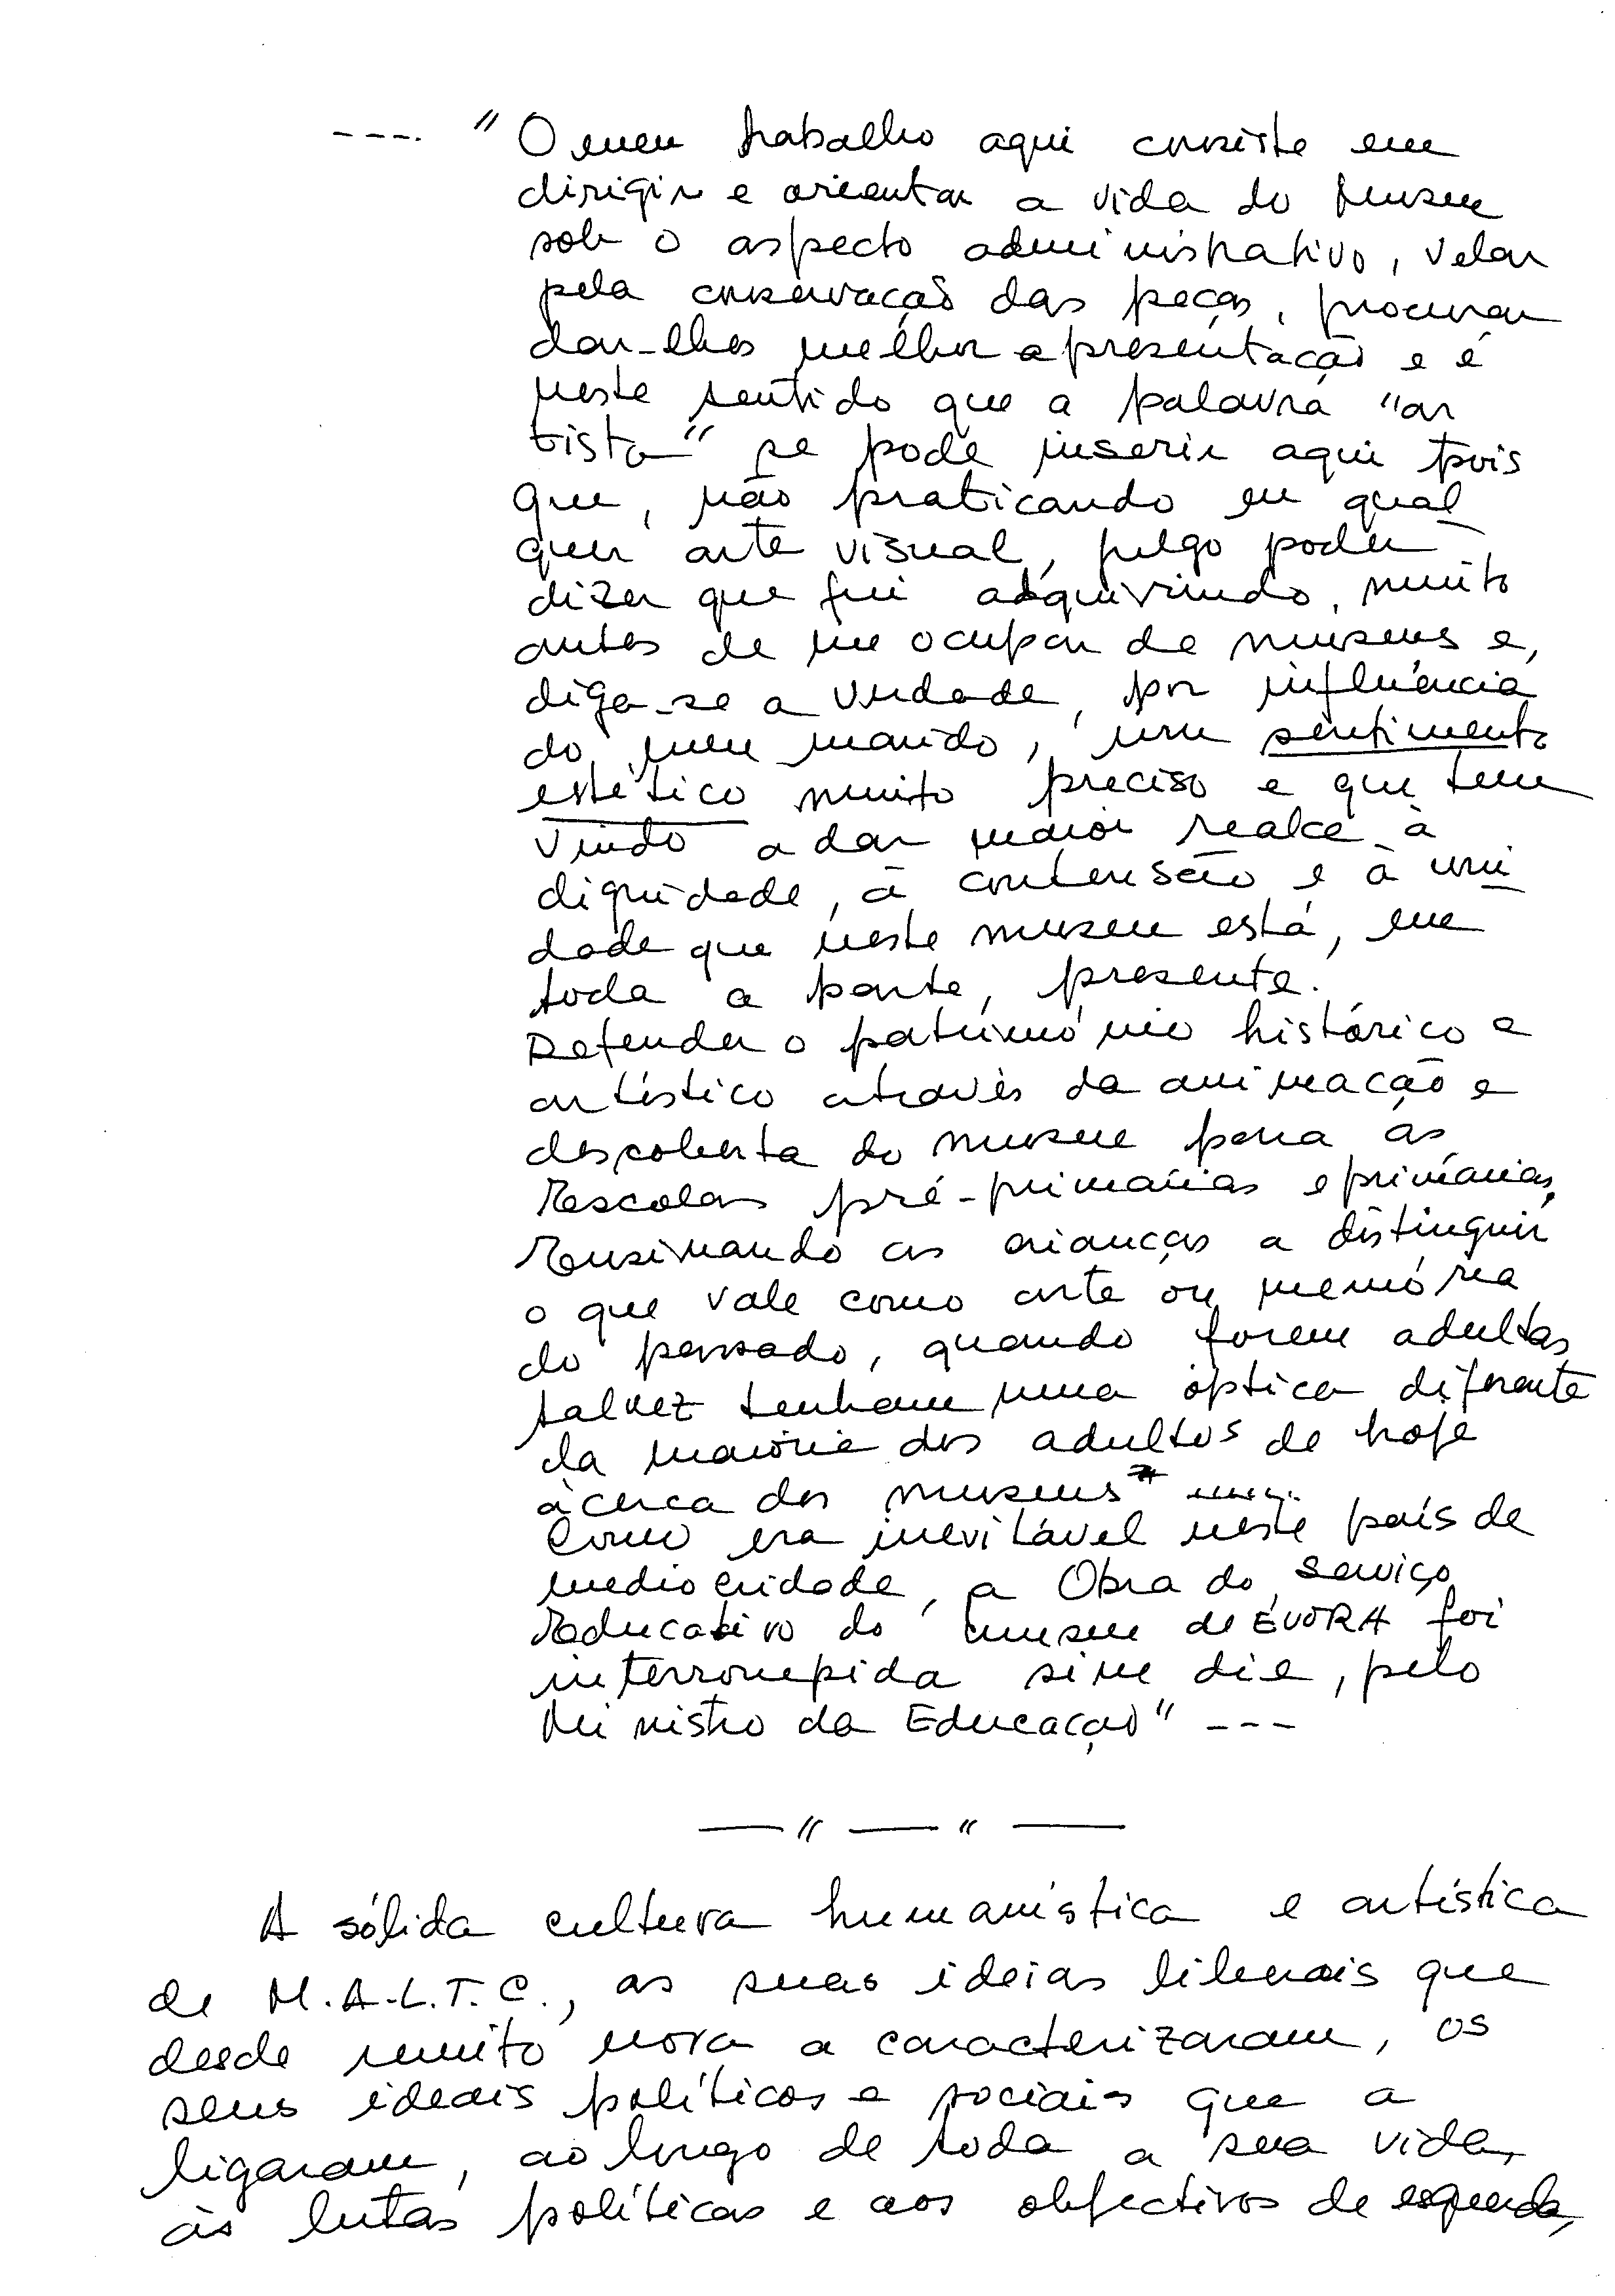 ---. "O meu trabalho aqui consiste em
dirigir e orientar a vida do Museu
sob o aspecto administrativo, velar
pela conservação das peças, procurar
dar-lhes melhor apresentação e é
neste sentido que a palavra "ar
tista" se pode inserir aqui pois
que, não praticando eu qual
quer arte visual, julgo poder
dizer que fui adquirindo, muito
antes de me ocupar de museus e,
diga-se a verdade, por influência
do meu marido, um sentimento
estético muito preciso e que tem
vindo a dar maior realce à
dignidade, à contensão e à uni
dade que neste museu está, em
toda a parte, presente.
Defender o património histórico e
artístico através da animação e
descoberta do museu para as
Escolas pré-primárias e primárias,
Ensinando as crianças a distinguir
o que vale como arte ou memória
do passado, quando forem adultas
talvez tenham uma óptica diferente
da maioria dos adultos de hoje
àcerca dos museus
Como era inevitável neste país de
mediocridade, a Obra do Serviço
Educativo do museu de ÉVORA foi
interrompida sine die, pelo
Ministro da Educação" ---
— " — " —
A sólida cultura humanística e artística
de M.A.L.T.C., as suas ideias liberais que
desde muito nova a caracterizaram, os
seus ideais políticos e sociais que a
ligaram, ao longo de toda a sua vida,
às lutas políticas e aos objectivos de esquerda,